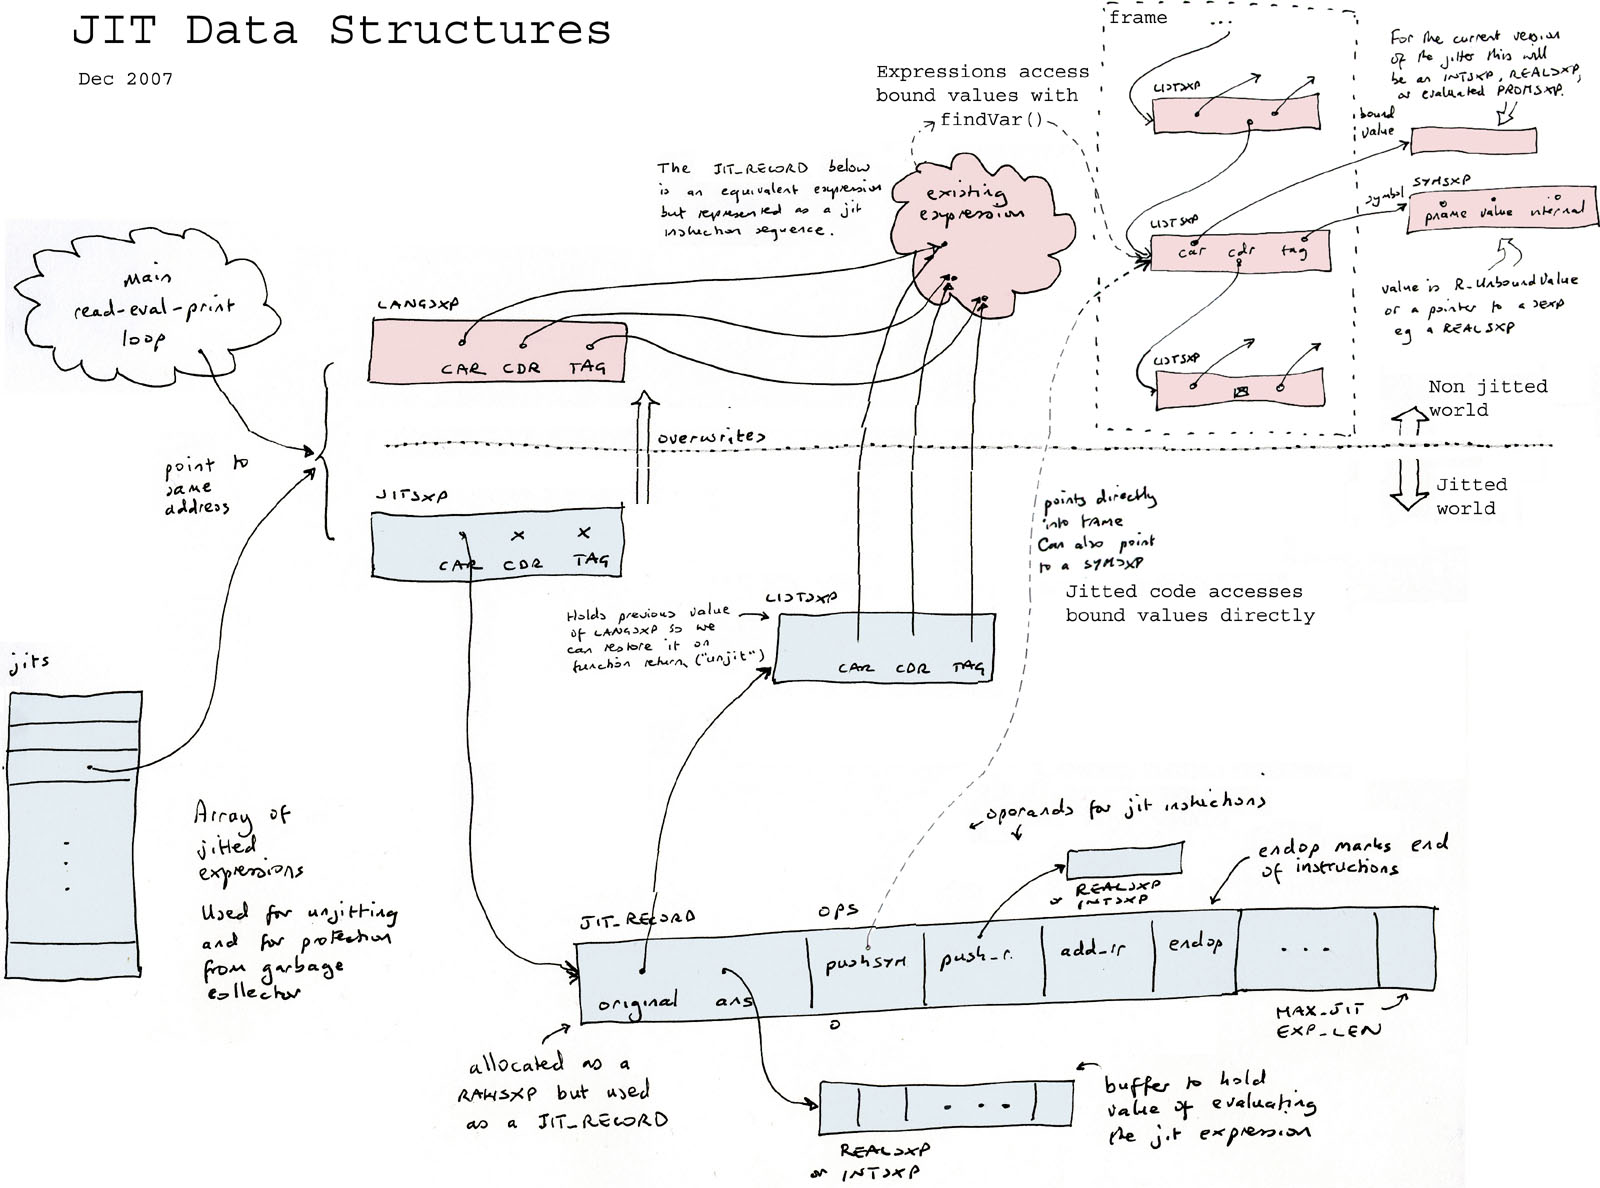 JIT Data Structures
Dec 2007
frame
...
For the current version
of the jitter this will
be an INTSXP, REALSXP,
or evaluated PROMSXP.
Expressions access
bound values with
findVar()
LISTSXP
bound
value
The JIT_RECORD below
is an equivalent expression
but represented as a jit
instruction sequence.
existing
expression
SYMSXP
symbol
pname value internal
LISTSXP
car cdr tag
value is R_UnboundValue
or a pointer to a SEXP
eg a REALSXP
main
read-eval-print
loop
LANGSXP
CAR CDR TAG
LISTSXP
Non jitted
world
overwrites
point to
same
address
Jitted
world
JITSXP
CAR CDR TAG
points directly
into frame
Can also point
to a SYMSXP
Jitted code accesses
bound values directly
Holds previous value
of LANGSXP so we
can restore it on
function return ("unjit")
LISTSXP
CAR CDR TAG
jits
Array of
jitted
expressions
Used for unjitting
and for protection
from garbage
collector
operands for jit instructions
REALSXP
or INTSXP
endop marks end
of instructions
JIT_RECORD
OPS
original ans
pushsym
push_r
add_ir
endop
...
0
MAX_JIT
EXP_LEN
allocated as a
RAWSXP but used
as a JIT_RECORD
...
REALSXP
or INTSXP
buffer to hold
value of evaluating
the jit expression